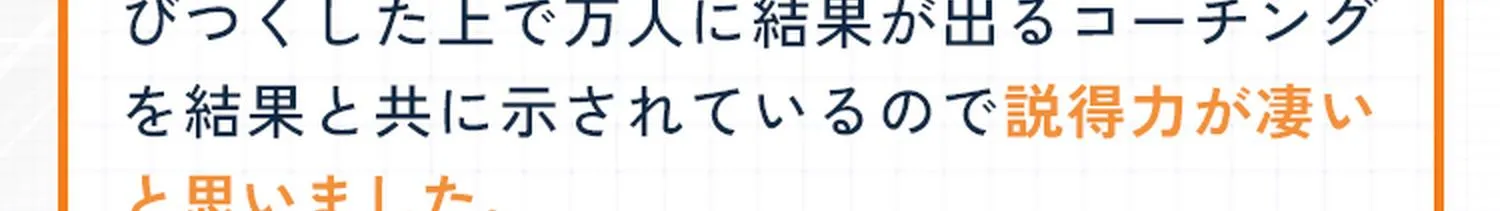 びつくした上で万人に結果が出るコーチング
を結果と共に示されているので説得力が凄い
と思いました。